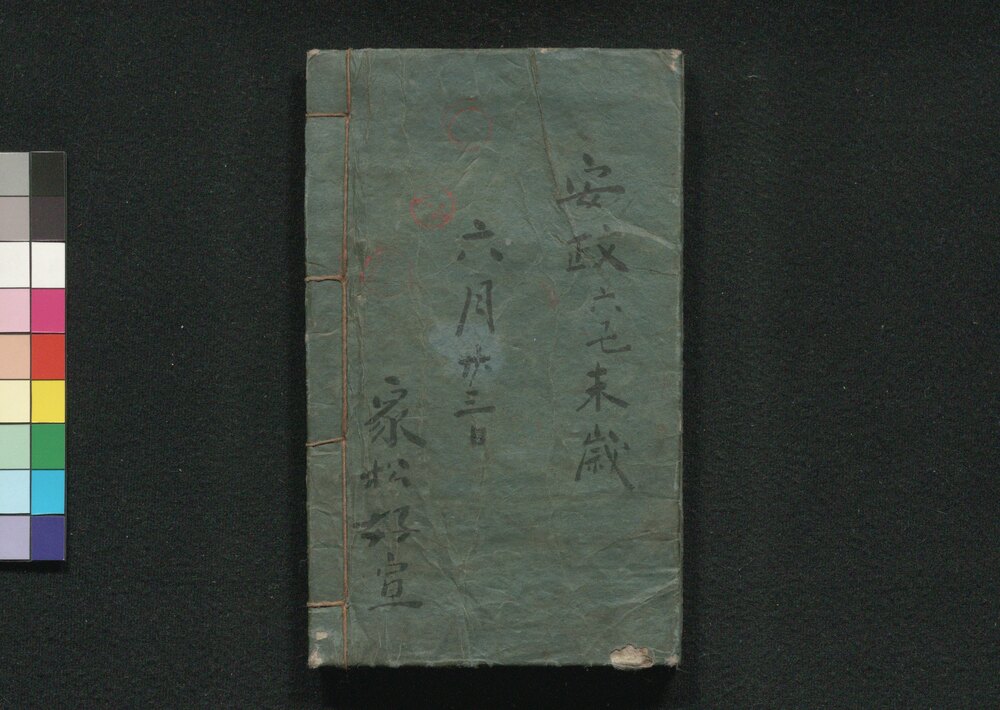 安政六己未歳
六月廿三日
家松好宣